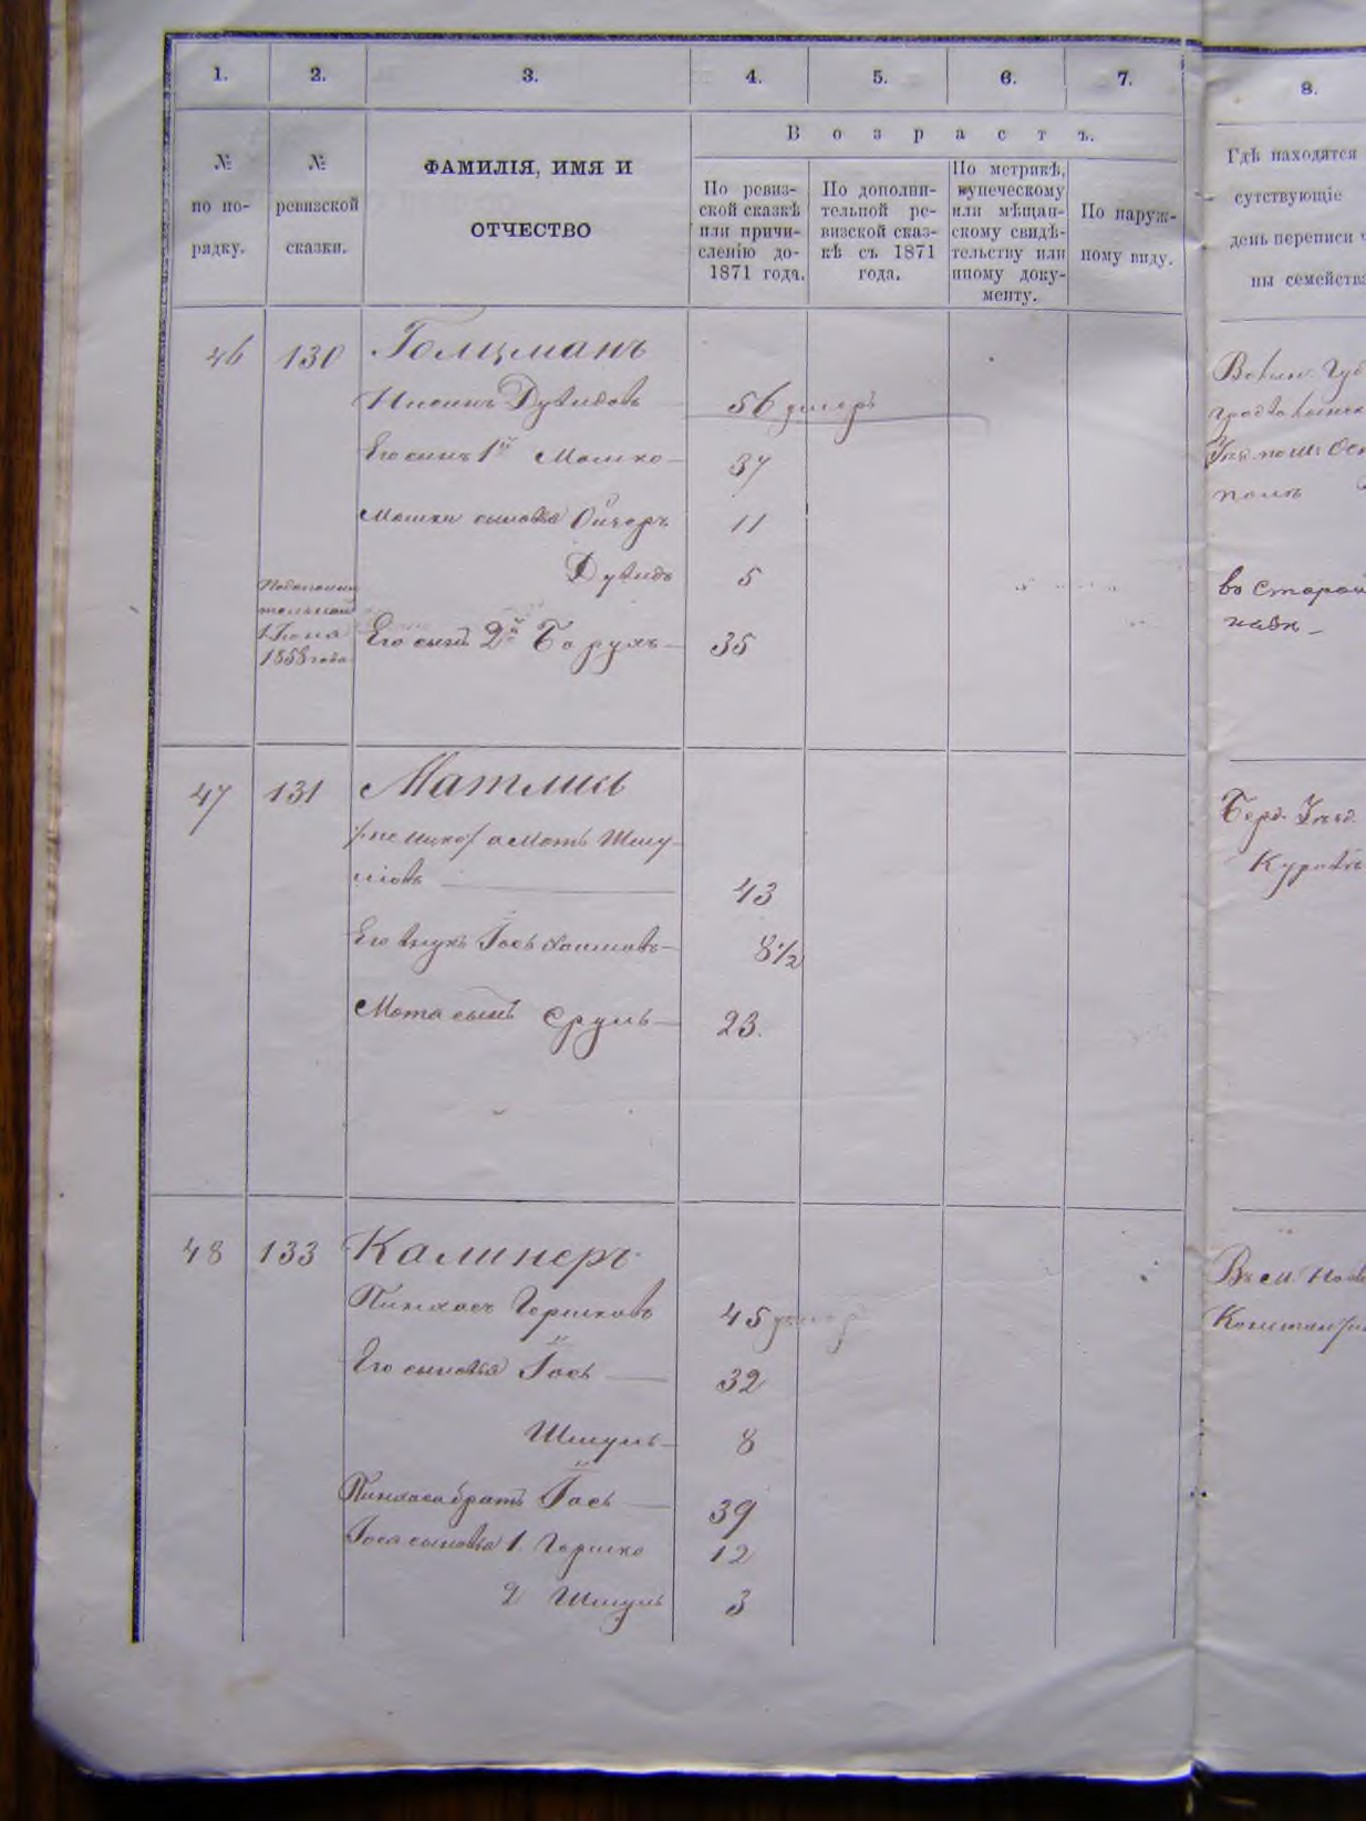 1. 2. 3. 4. 5. 6. 7. 8.
№ по по- рядку.
№ ревизской сказки.
ФАМИЛІЯ, ИМЯ И
ОТЧЕСТВО
Возрастъ.
По ревиз-
ской сказкѣ
или причи-
сленію до-
1871 года.
По дополни-
тельной ре-
визской сказ-
кѣ съ 1871
года.
По метрикѣ,
купеческому
или мѣщан-
скому свидѣ-
тельству или
иному доку-
менту.
По наруж-
ному виду.
Гдѣ находятся
сутствующіе
день переписи
ны семейства
46 130 Голцманъ
Дувидовъ 56 умеръ
Его сынъ 1й Мошко 37
Мошки сыновья Ойзеръ 11
Дувидъ 5
1858 года
Его сынъ 2й Борухъ 35
во Старой
47 131 Матликъ
Мотъ Шму-
ліовъ 43
Его внукъ Іось Хаимовъ 8½
Мота сынъ Сруль 23.
Берд. Уѣзд.
48 133 Калинеръ
Пинхасъ Гершковъ 45 умер
Его сыновья Іось 32
Шмуль 8
Пинхаса братъ Іось 39
Іося сыновья 1. Гершко 12
2 Шмуль 3